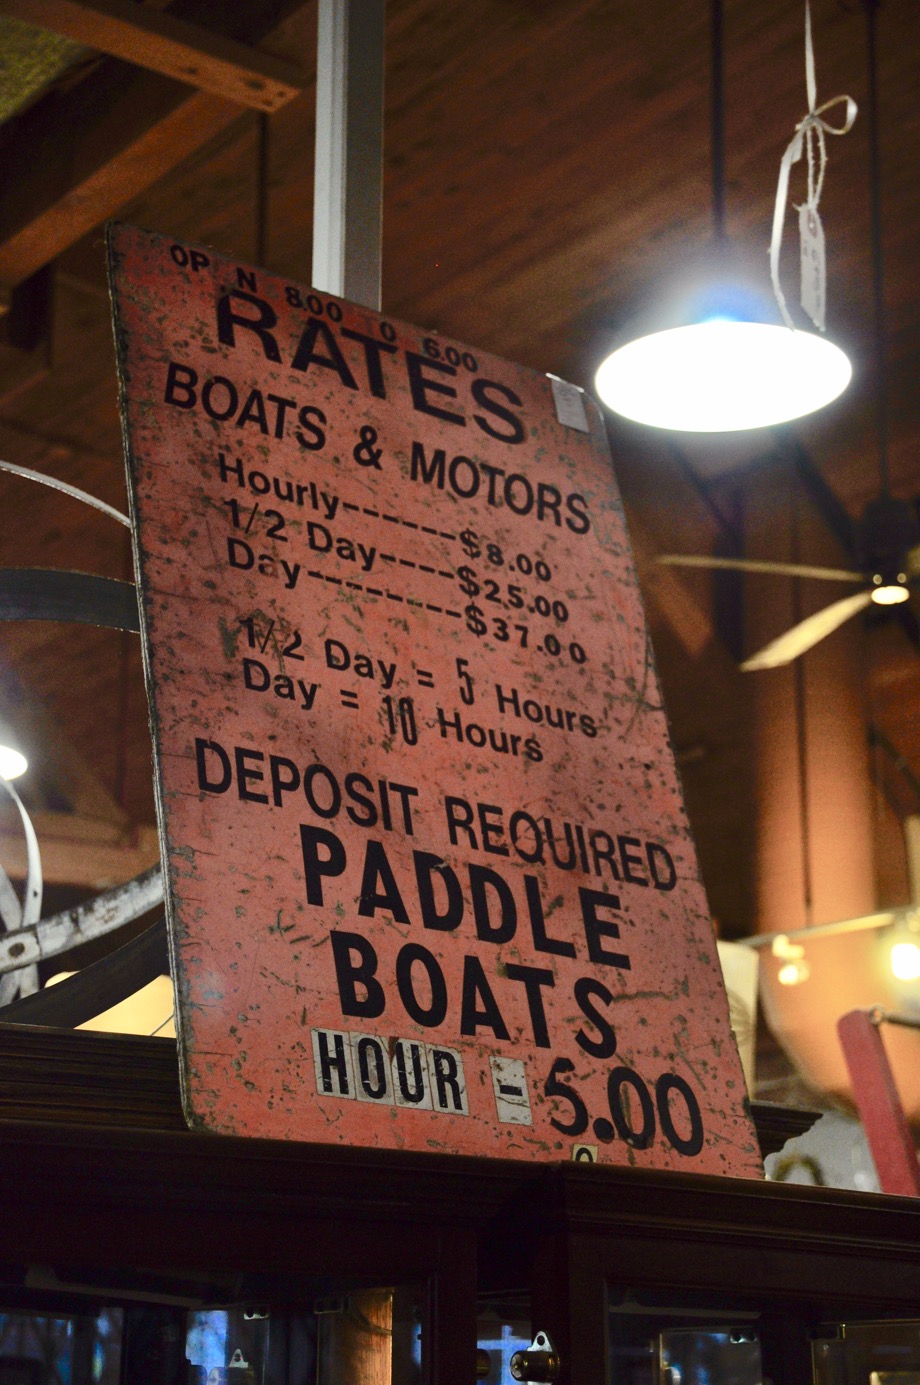 OP N 8.00 0 6.00
RATES
BOATS & MOTORS
Hourly------$8.00
1/2 Day-----$25.00
Day---------$37.00
1/2 Day = 5 Hours
Day = 10 Hours
DEPOSIT REQUIRED
PADDLE
BOATS
HOUR - 5.00